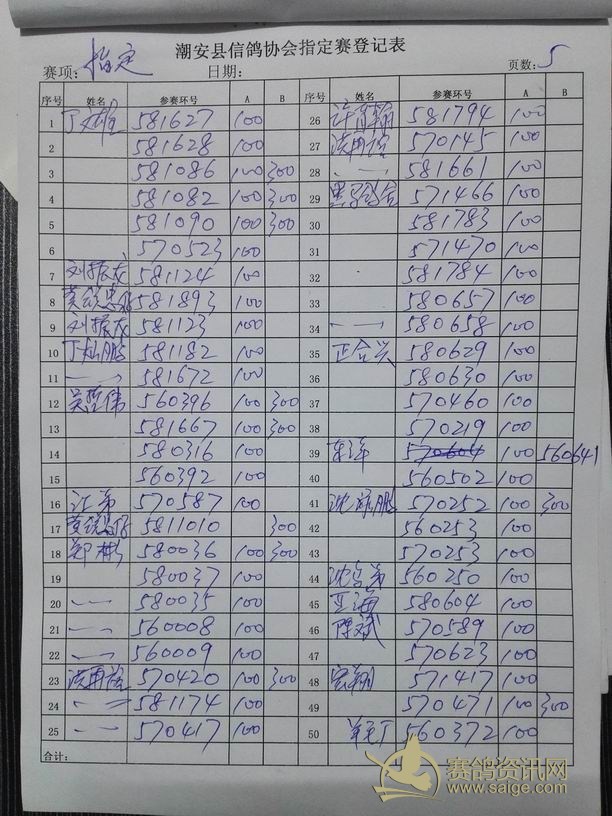 潮安县信鸽协会指定赛登记表
赛项: 指定 日期: 页数: 5
序号 姓名 参赛环号 A B 序号 姓名 参赛环号 A B
1 581627 100 26 581794 100
2 581628 100 27 570145 100
3 581086 100 300 28 581661 100
4 581082 100 300 29 571466 100
5 581090 100 300 30 581783 100
6 570523 100 31 571470 100
7 刘振龙 581124 100 32 581784 100
8 581893 100 33 580657 100
9 刘振龙 581123 100 34 580658 100
10 丁灿鹏 581182 100 35 正合兴 580629 100
11 581672 100 36 580630 100
12 560396 100 300 37 570460 100
13 581667 100 300 38 570219 100
14 580316 100 39 570604 100 560641
15 560392 100 40 560502 100
16 570587 100 41 570252 100 300
17 5811010 300 42 560253 100
18 郑彬 580036 100 300 43 570253 100
19 580037 100 44 560250 100
20 580035 100 45 亚海 580604 100
21 560008 100 46 陈斌 570589 100
22 560009 100 47 570623 100
23 570420 100 300 48 宏翔 571417 100
24 581174 100 49 570471 100 300
25 570417 100 50 560372 100
合计:
赛鸽资讯网
www.saige.com